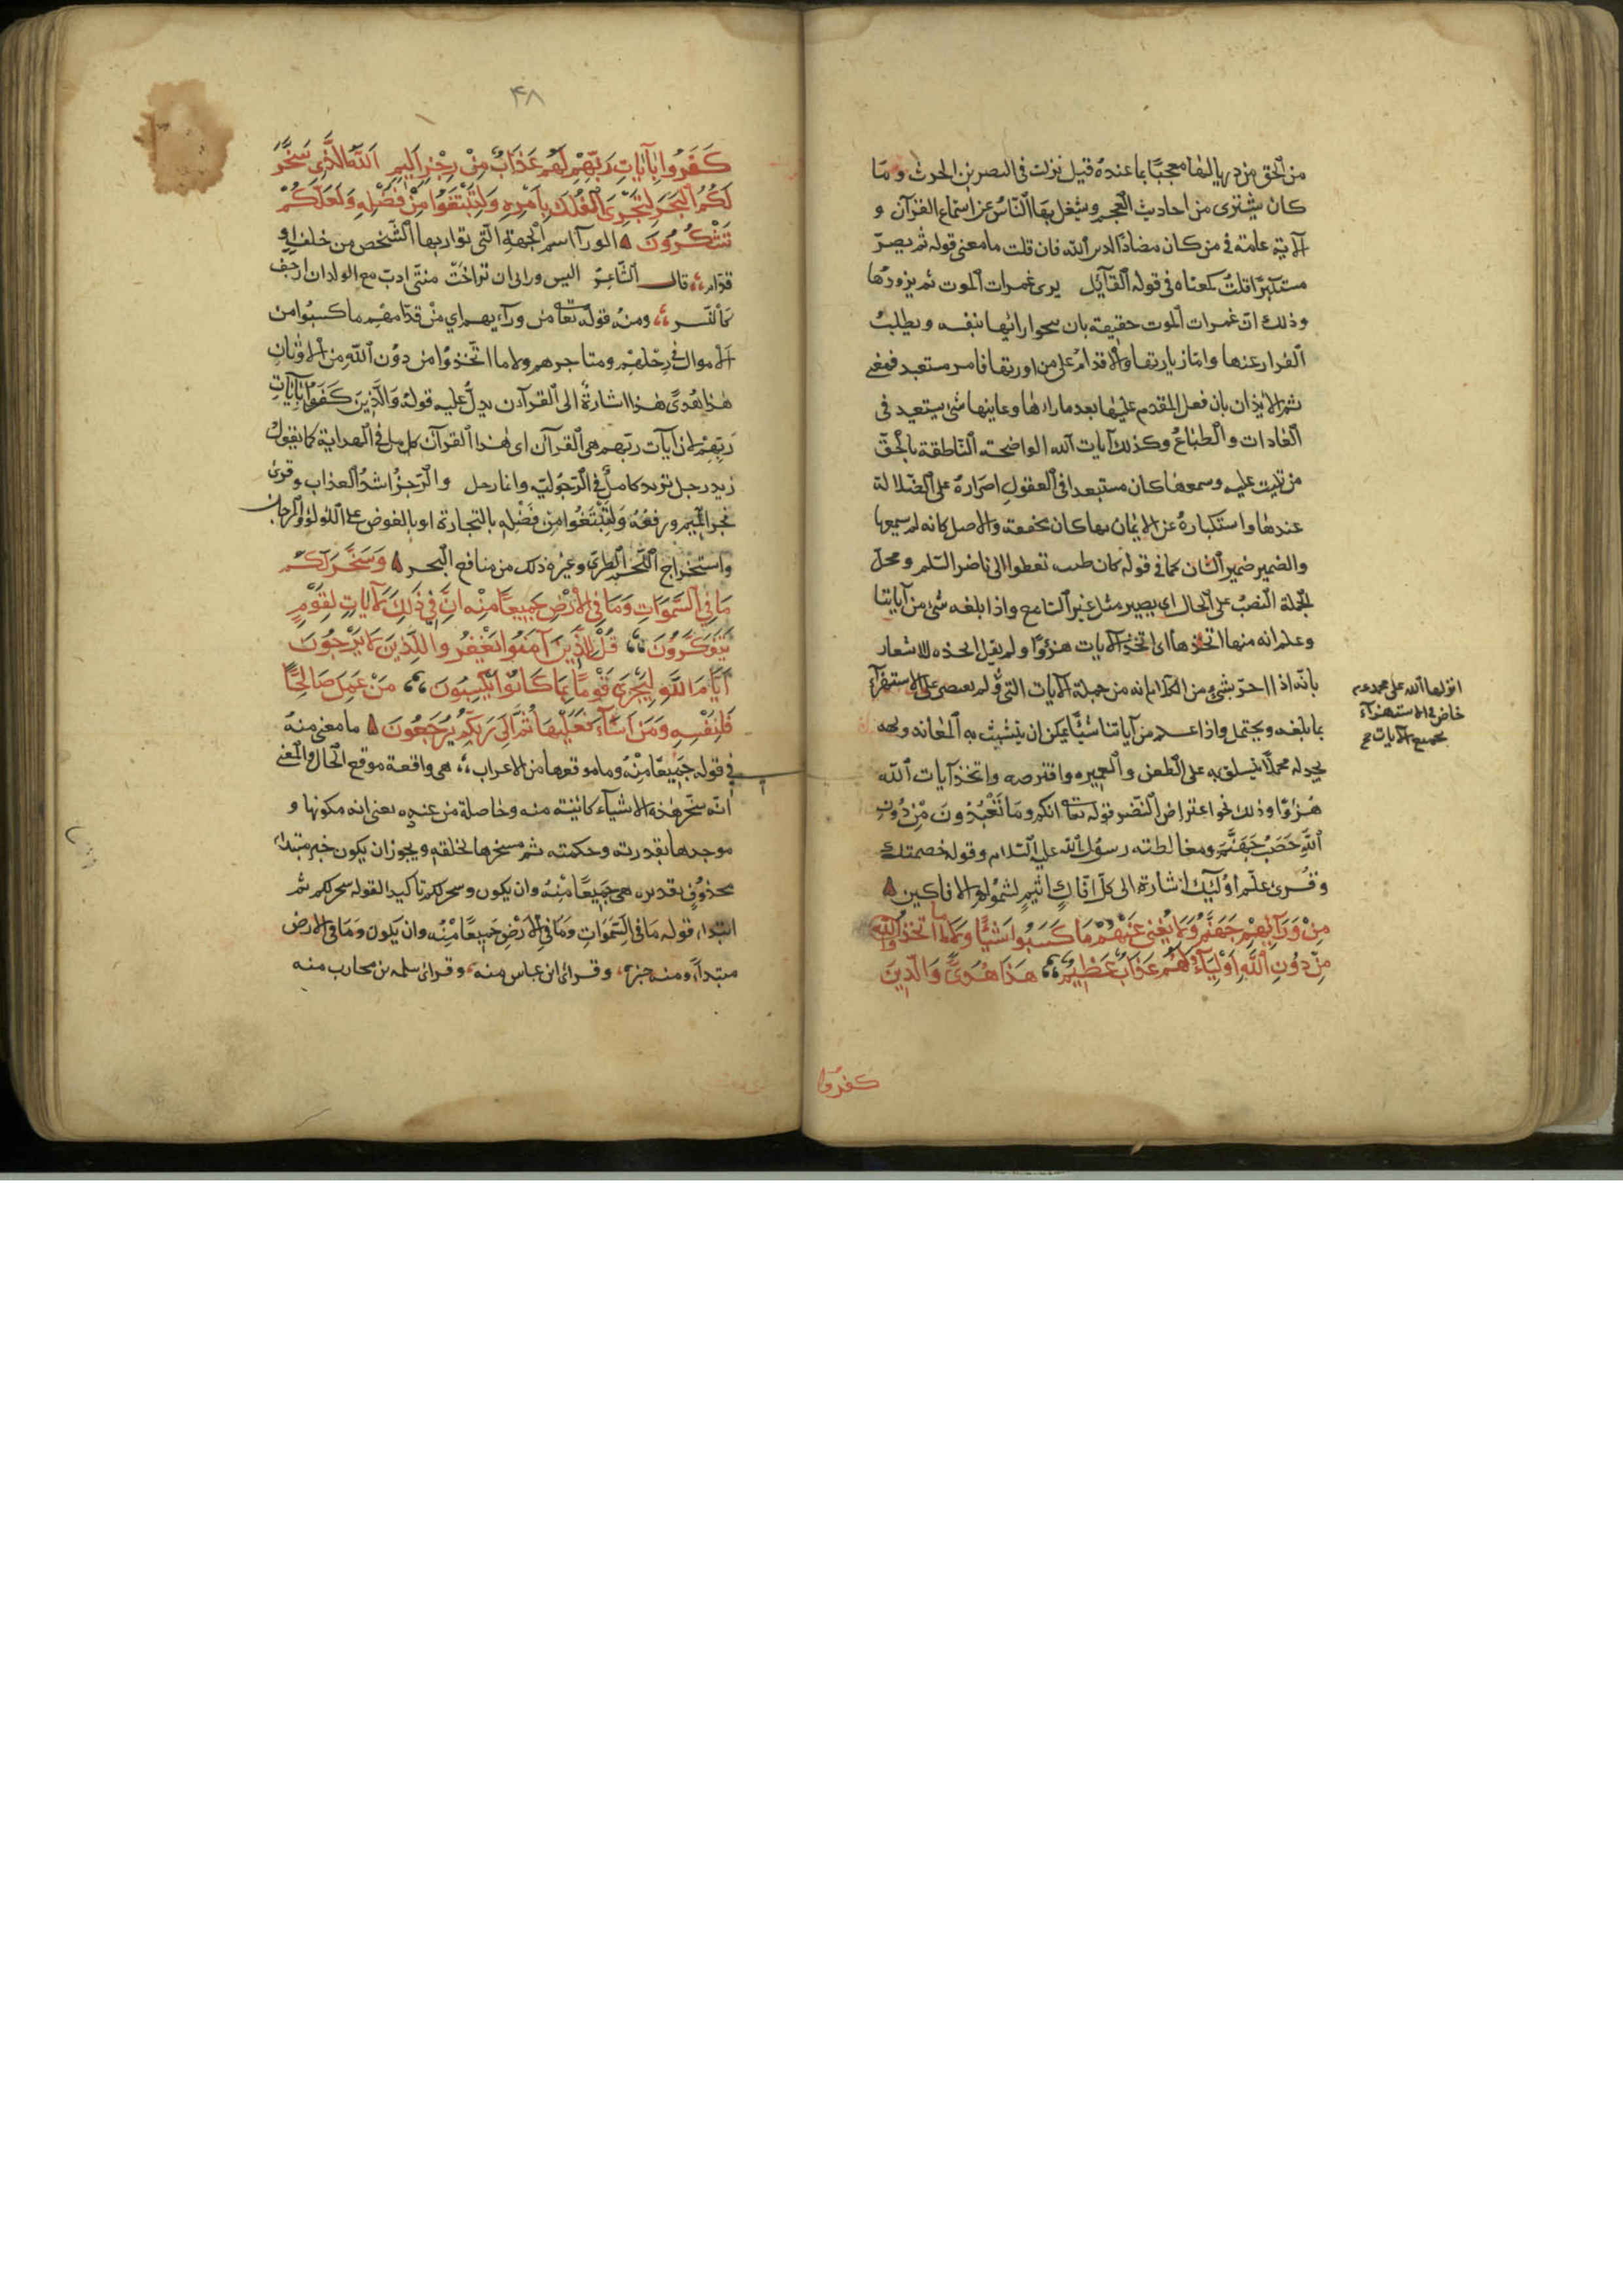 من الحق مزدريا لها معجبًا بما عنده قيل نزلت فى النصر بن الحرث وما
كان يشترى من احاديث العجم ويشغل بها الناس عن استماع القرآن و
الآية عامة فى من كان مضادًا لدين الله فان قلت ما معنى قوله ثم يصرّ
مستكبرًا قلت كمعناه فى قول القآئل يرى غمرات الموت ثم يزورها
وذلك انّ غمرات الموت حقيقة بان ينجو رائيها بنفسه ويطلب
الفرار عنها وامّا زيارتها والاقدام على من اولتها فامر مستبعد فمعنى
ثم الايذان بان فعل المقدم عليها بعد ما راها وعاينها شئ يستبعد فى
العادات والطباع وكذلك آيات الله الواضحة الناطقة بالحقّ
من تليت عليه وسمعها كان مستبعدا فى العقول اصراره على الضلالة
عندها واستكباره عن الايمان بها كان مخففة والاصل كانه لم يسمعها
والضمير ضمير الشان كما فى قوله كان ظبية تعطوا الى ناضر السلم ومحل
الجملة النصب على الحال اى يصير مثل غير السامع واذا بلغه شئ من آياتنا
وعلم انه منها اتخذها اى اتخذ الآيات هزؤًا ولم يقل اتخذه للاشعار
بانّه اذا احسّ بشئ من الكلام انه من جملة الآيات التى لم يقتصر على الاستهزآء
بما بلغه ويحتمل واذا علم من آياتنا شيئًا يمكن ان يتشبث به المعاند ويجد
يجد له محملًا يتسلق به على الطعن والغميزه وافترصه واتخذ آيات الله
هزوًا وذلك نحو اعتراض النضر قوله تعا انكم وما تعبدون من دون
الله حصب جهنم ومغالطته رسول الله عليه السّلام وقوله خصمتك
وقرئ علّم اولئك اشارة الى كلّ افّاك اثيم لشموله الافاكين
من ورآئهم جهنم ولا يغنى عنهم ما كسبوا شيئًا ولا ما اتخذوا
من دون الله اوليآء ولهم عذاب عظيم هذا هدى والذين
انزلها الله على محمد عم
خاض فى الاستهزآء
بجميع الآيات صح
كفروا
٤٨
كَفَرُوا بِآيَاتِ رَبِّهِمْ لَهُمْ عَذَابٌ مِنْ رِجْزٍ اَلِيمٍ اَللهُ الَّذِى سَخَّرَ
لَكُمُ الْبَحْرَ لِتَجْرِىَ الْفُلْكُ بِاَمْرِهِ وَلِتَبْتَغُوا مِنْ فَضْلِهِ وَلَعَلَّكُمْ
تَشْكُرُونَ الورآ اسم للجهة التى يواريها الشخص من خلف او
قدّام قال الشّاعر اليس ورائى ان تراخت منيّتى ادبّ مع الولدان ازحف
كالنّسر ومنه قوله تعا من ورآءيهم اي من قدّامهم ما كسبوا من
الاموال فى رحلهم ومتاجرهم ولا ما اتّخذوا من دون الله من الاوثان
هذا هدىً هذا اشارة الى القرآن يدلّ عليه قوله والّذين كفروا بآيات
ربّهم لان آيات ربّهم هى القرآن اى هذا القرآن كامل فى الهداية كما يقول
زيد رجل تريد كامل فى الرّجوليّة وايما رجل والرّجز اشدّ العذاب وقرئ
بجر اليم ورفعه ولتبتغوا من فضله بالتجارة او بالغوص على اللولؤ والمرجان
واستخراج اللّحم الطرىّ وغيره ذلك من منافع البحر وَسَخَّرَ لَكُمْ
مَا فِي السَّمَوَاتِ وَمَا فِى الْاَرْضِ جَمِيعًا مِنْهُ اِنَّ فِي ذَلِكَ لَآيَاتٍ لِقَوْمٍ
يَتَفَكَّرُونَ قُلْ لِلَّذِينَ آمَنُوا يَغْفِرُوا لِلَّذِينَ لَا يَرْجُونَ
اَيَّامَ اللهِ لِيَجْزِىَ قَوْمًا بِمَا كَانُوا يَكْسِبُونَ مَنْ عَمِلَ صَالِحًا
فَلِنَفْسِهِ وَمَنْ اَسَآءَ فَعَلَيْهَا ثُمَّ اِلَى رَبِّكُمْ تُرْجَعُونَ ما معنى منه
فى قوله جميعًا منه وما موقعها من الاعراب هى واقعة موقع الحال والمعنى
انّه سخّر هذه الاشيآء كائنة منه وحاصلة من عنده يعنى انه مكونها و
موجدها بقدرته وحكمته ثم مسخرها لخلقه ويجوز ان يكون خبر مبتداء
محذوف تقديره هى جميعًا منه وان يكون وسخر لكم تاكيدا لقوله سخر لكم ثم
ابتداء قوله ما فى السّموات وما فى الارض جميعًا منه وان يكون وما فى الارض
مبتداءً ومنه خبره وقرائ ابن عباس منه وقرائ سلمه بن محارب منه